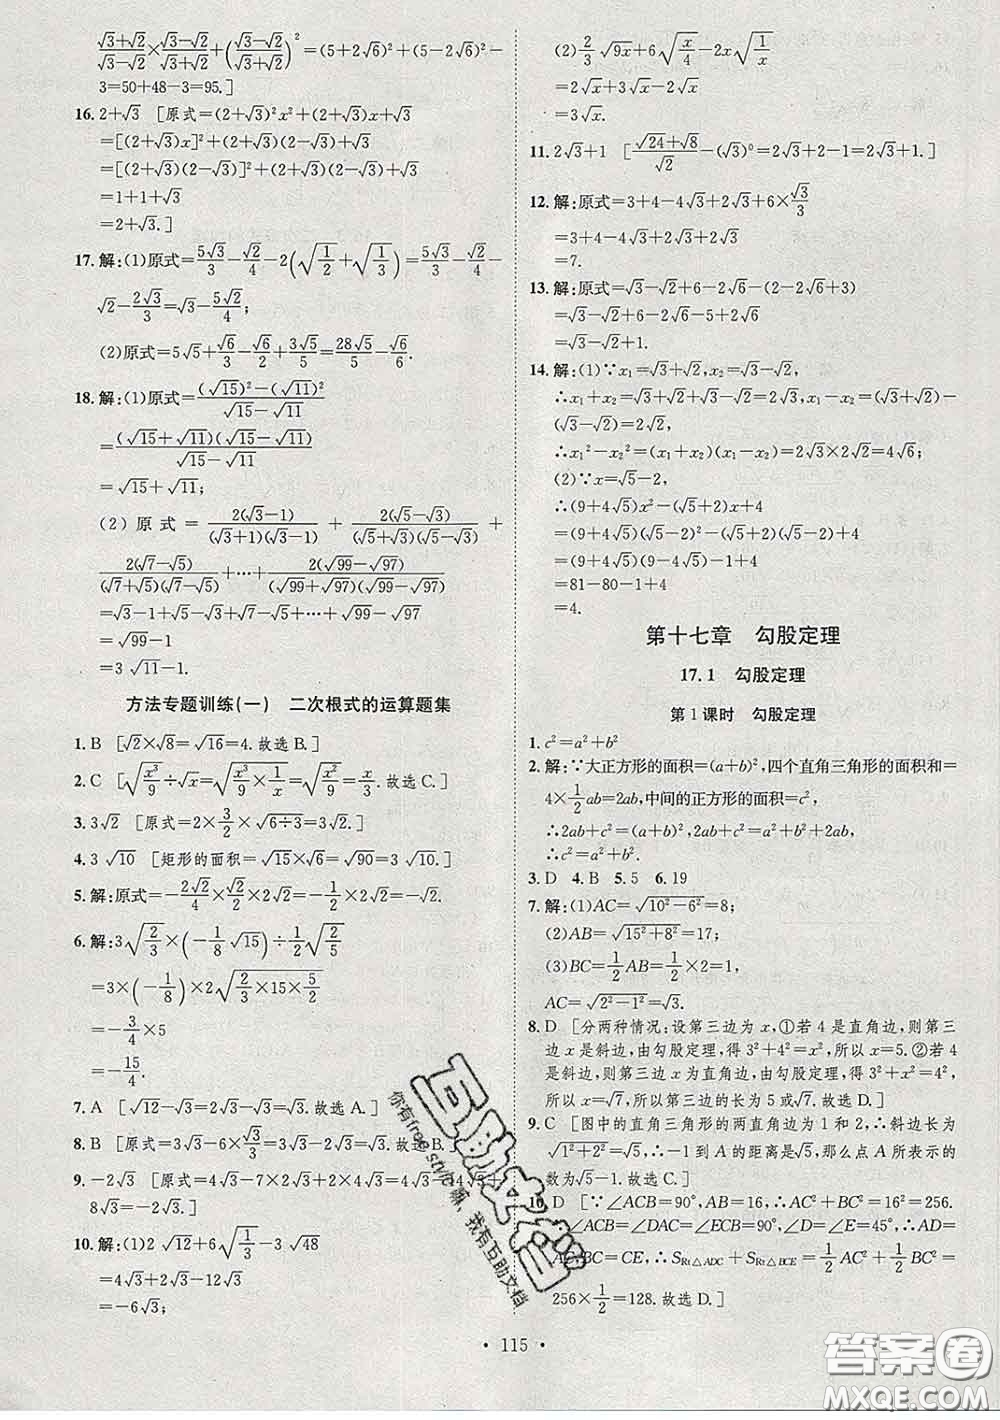 (√3+√2)/(√3-√2)×(√3-√2)/(√3+√2)+((√3-√2)/(√3+√2))²=(5+2√6)²+(5-2√6)²-
3=50+48-3=95.]
16. 2+√3 [原式=(2+√3)²x²+(2+√3)x+√3
=[(2+√3)x]²+(2+√3)(2-√3)+√3
=[(2+√3)(2-√3)]²+(2+√3)(2-√3)+√3
=1+1+√3
=2+√3.]
17. 解:(1)原式=5√3/3-√2/4-2(√(1/2)+√(1/3))=5√3/3-√2/4-
√2-2√3/3=√3-5√2/4;
(2)原式=5√5+√6/3-√6/2+3√5/5=28√5/5-√6/6.
18. 解:(1)原式=((√15)²-(√11)²)/(√15-√11)
=(√15+√11)(√15-√11)/(√15-√11)
=√15+√11;
(2)原式=2(√3-1)/(√3+1)(√3-1)+2(√5-√3)/(√5+√3)(√5-√3)+
2(√7-√5)/(√7+√5)(√7-√5)+…+2(√99-√97)/(√99+√97)(√99-√97)
=√3-1+√5-√3+√7-√5+…+√99-√97
=√99-1
=3√11-1.
方法专题训练(一) 二次根式的运算题集
1. B [√2×√8=√16=4.故选B.]
2. C [√(x³/9)÷√x=√(x³/9×1/x)=√(x²/9)=x/3.故选C.]
3. 3√2 [原式=2×3/2×√(6÷3)=3√2.]
4. 3√10 [矩形的面积=√15×√6=√90=3√10.]
5. 解:原式=-2√2/4×2√2/2×2√2=-2√2/2=-√2.
6. 解:3√(2/3)×(-1/8√15)÷1/2√(2/5)
=3×(-1/8)×2√(2/3×15×5/2)
=-3/4×5
=-15/4.
7. A [√12-√3=2√3-√3=√3.故选A.]
8. B [原式=3√3-6×√3/3=3√3-2√3=√3.故选B.]
9. -2√3 [原式=4√3-7×2√3+2×4√3=4√3-14√3+
8√3=-2√3.]
10. 解:(1)2√12+6√(1/3)-3√48
=4√3+2√3-12√3
=-6√3;
(2)2/3√9x+6√(x/4)-2x√(1/x)
=2√x+3√x-2√x
=3√x.
11. 2√3+1 [(√24+√8)/√2-(√3)⁰=2√3+2-1=2√3+1.]
12. 解:原式=3+4-4√3+2√3+6×√3/3
=3+4-4√3+2√3+2√3
=7.
13. 解:原式=√3-√2+6-2√6-(2-2√6+3)
=√3-√2+6-2√6-5+2√6
=√3-√2+1.
14. 解:(1)∵x₁=√3+√2,x₂=√3-√2,
∴x₁+x₂=√3+√2+√3-√2=2√3,x₁-x₂=(√3+√2)-
(√3-√2)=2√2,
∴x₁²-x₂²=(x₁+x₂)(x₁-x₂)=2√3×2√2=4√6;
(2)∵x=√5-2,
∴(9+4√5)x²-(√5+2)x+4
=(9+4√5)(√5-2)²-(√5+2)(√5-2)+4
=(9+4√5)(9-4√5)-1+4
=81-80-1+4
=4.
第十七章 勾股定理
17.1 勾股定理
第1课时 勾股定理
1. c²=a²+b²
2. 解:∵大正方形的面积=(a+b)²,四个直角三角形的面积和=
4×1/2ab=2ab,中间的正方形的面积=c²,
∴2ab+c²=(a+b)²,2ab+c²=a²+b²+2ab,
∴c²=a²+b².
3. D 4. B 5. 5 6. 19
7. 解:(1)AC=√(10²-6²)=8;
(2)AB=√(15²+8²)=17;
(3)BC=1/2AB=1/2×2=1,
AC=√(2²-1²)=√3.
8. D [分两种情况:设第三边为x,①若4是直角边,则第三
边x是斜边,由勾股定理,得3²+4²=x²,所以x=5.②若4
是斜边,则第三边x为直角边,由勾股定理,得3²+x²=4²,
所以x=√7,所以第三边的长为5或√7.故选D.]
9. C [图中的直角三角形的两直角边为1和2,∴斜边长为
√(1²+2²)=√5,∴-1到A的距离是√5,那么点A所表示的
数为√5-1.故选C.]
10. D [∵∠ACB=90°,AB=16,∴AC²+BC²=16²=256.
∵∠ACB=∠DAC=∠ECB=90°,∠D=∠E=45°,∴AD=
AC,BC=CE,∴S Rt△ADC+S Rt△BCE=1/2AC²+1/2BC²=
256×1/2=128.故选D.]
115
互助文档
你有free style嘛,我有互助文档
答案圈
MXQE.COM